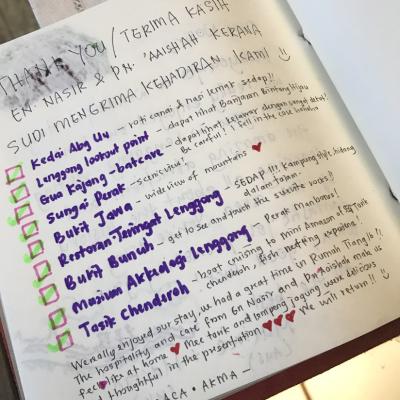 THANK YOU / TERIMA KASIH
EN. NASIR & PN. 'AAISHAH KERANA
SUDI MENGRIMA KEHADIRAN KAMI
Kedai Abg Uu - roti canai & nasi lemak sedap!!
Lenggong lookout point - dapat lihat Banjaran Bintang Hijau
Gua Kajang - batcave - dapat lihat kelawar dengan sangat dekat!
Be careful! I fell in the cave hahaha
Sungai Perak - scenic view!
Bukit Jawa - wide view of mountains
Restoran Jaringat Lenggong - SEDAP!!! Kampung style, hidang
dalam talam.
Bukit Bunuh - get to see and touch the suevite rocks!!
Muzium Arkeologi Lenggong - Perak Man bones!
Tasik Chenderoh - boat cruising to mini Amazon of Tasik
Chenderoh, fish netting experience!
We really enjoyed our stay, we had a great time in Rumah Tiang 16!!
The hospitality and care from En Nasir and Pn Aaishah make us
feel like at home Mee tarik and lempeng jagung were delicious
and thoughtful in the presentation We will return!!
AKMA -